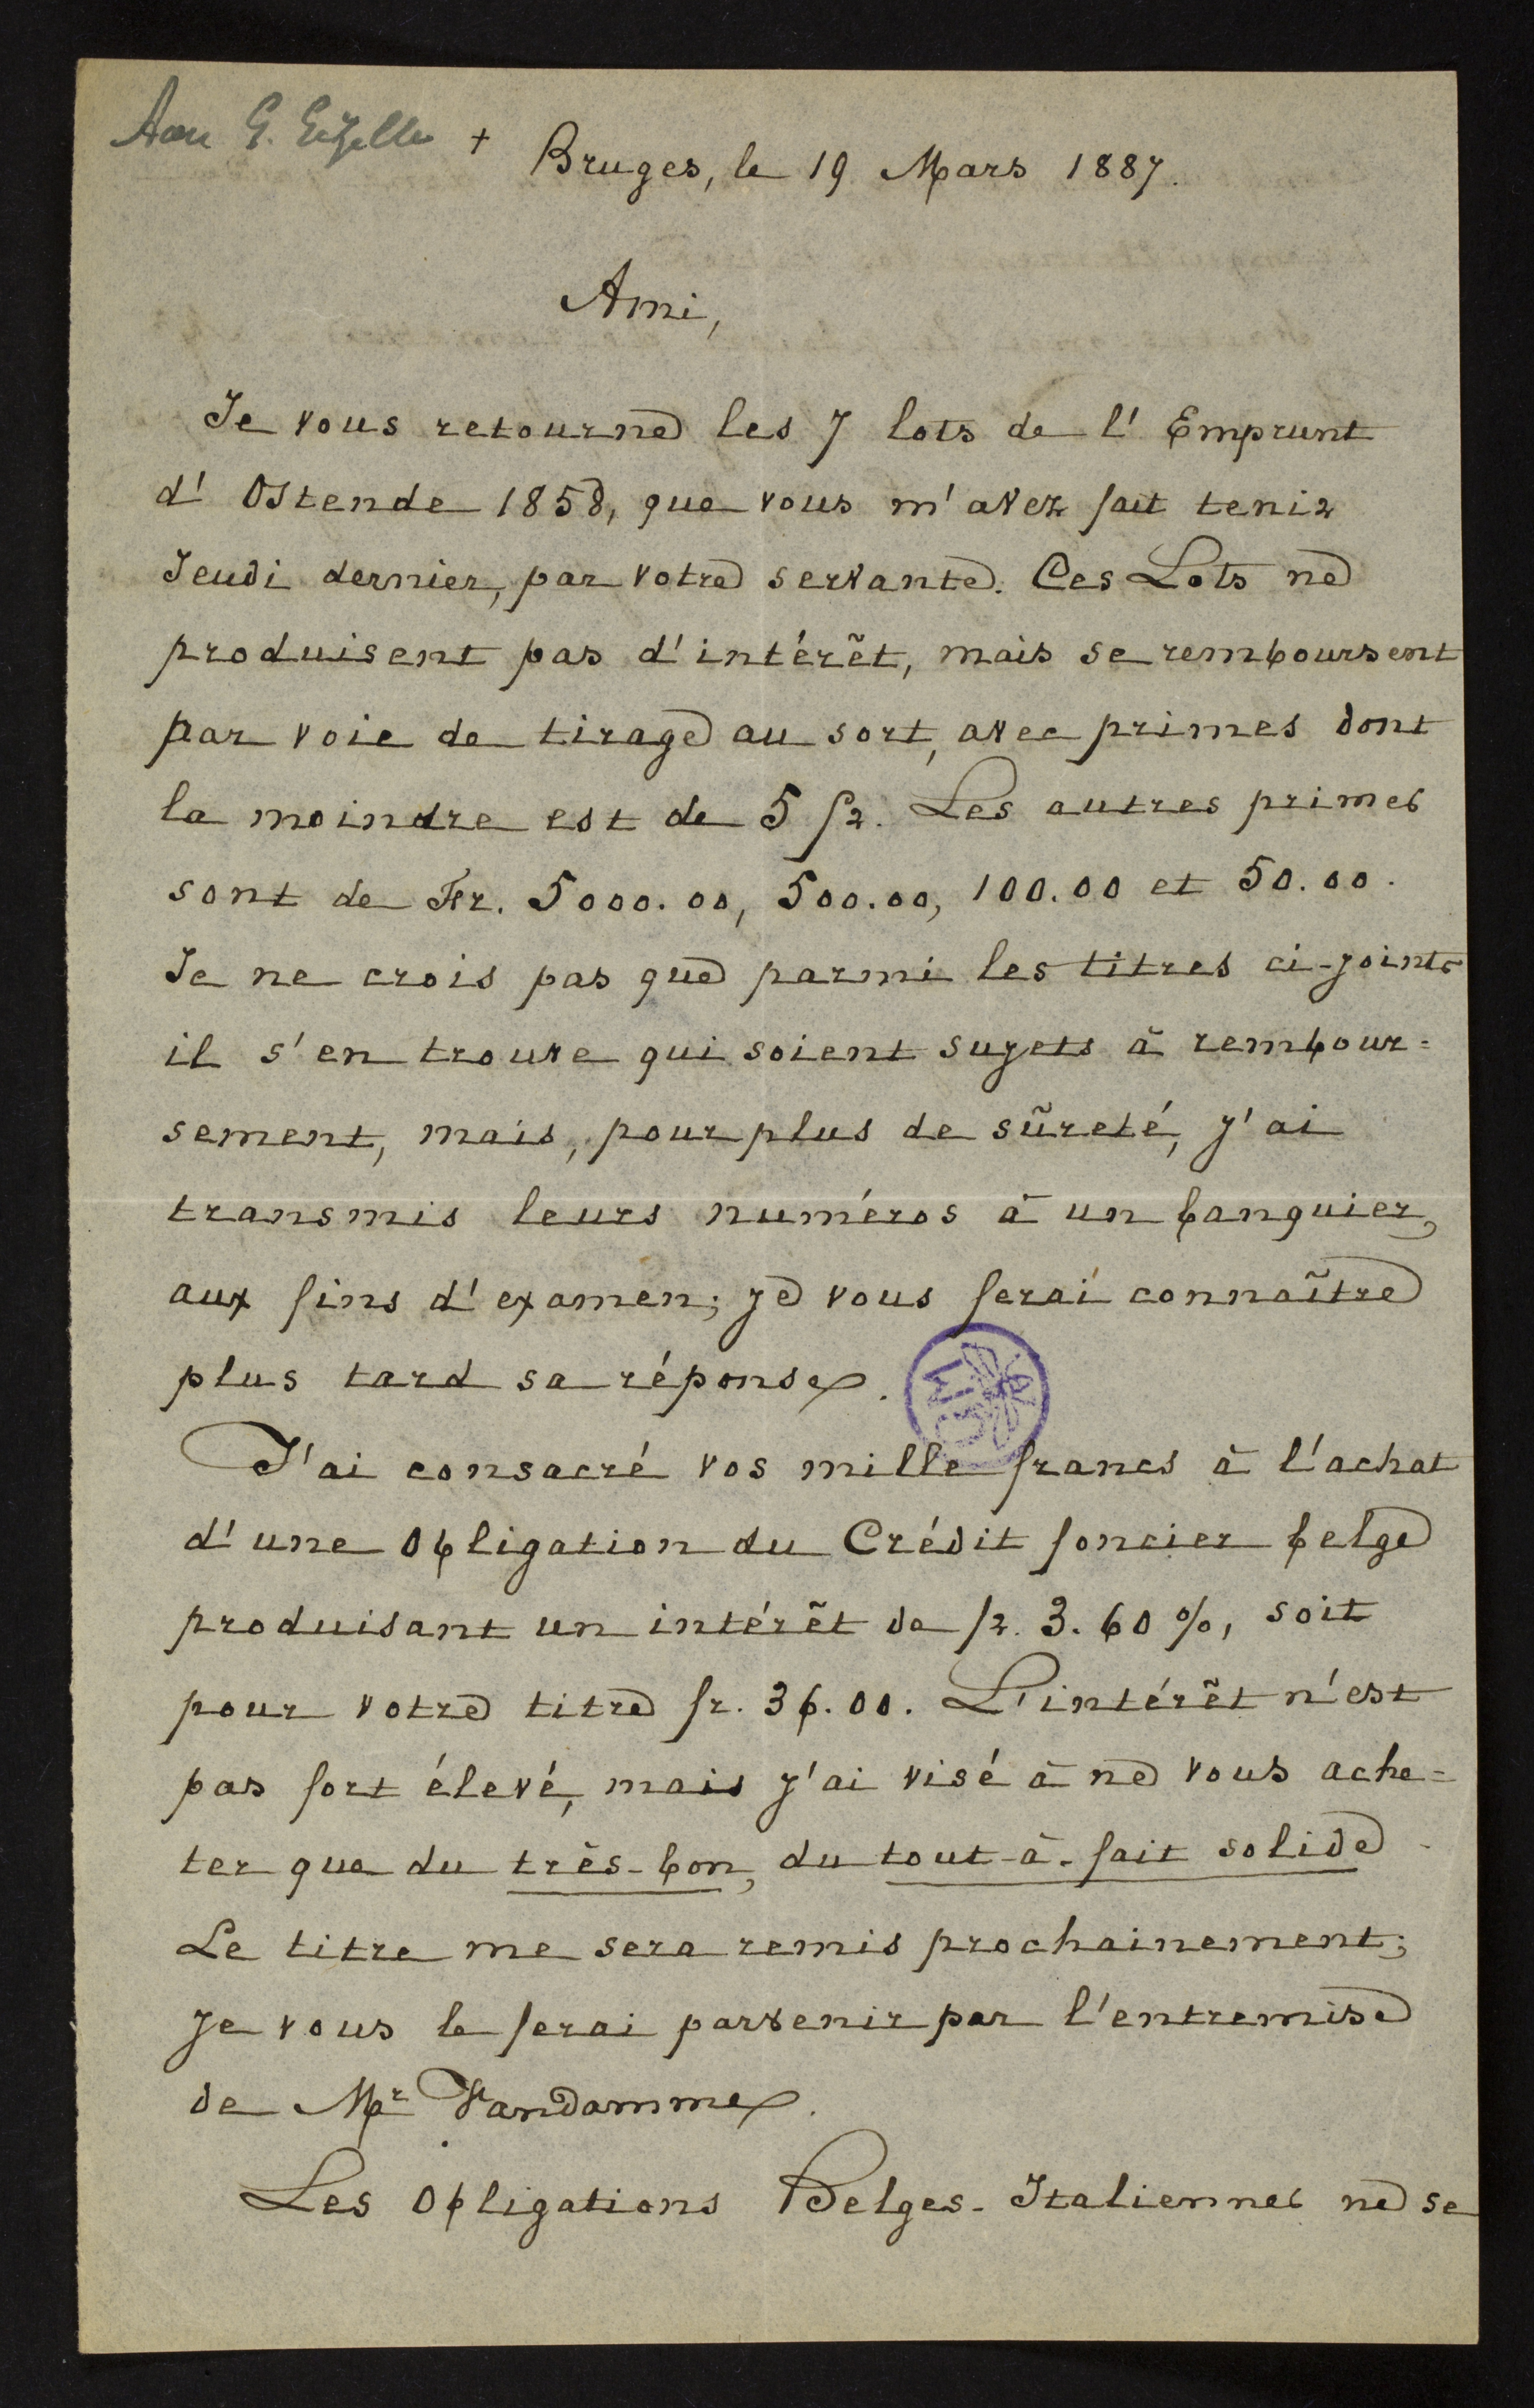 Aan G. Gezelle +
Bruges, le 19 Mars 1887.
Ami,
Je vous retourne les 7 lots de l'Emprunt
d'Ostende 1858, que vous m'avez fait tenir
Jeudi dernier, par votre servante. Ces Lots ne
produisent pas d'intérêt, mais se remboursent
par voie de tirage au sort, avec primes dont
la moindre est de 5 fr. Les autres primes
sont de Fr. 5000.00, 500.00, 100.00 et 50.00.
Je ne crois pas que parmi les titres ci-joints
il s'en trouve qui soient sujets à rembour=
sement, mais, pour plus de sûreté, j'ai
transmis leurs numéros à un banquier,
aux fins d'examen; je vous ferai connaître
plus tard sa réponse.
J'ai consacré vos mille francs à l'achat
d'une Obligation du Crédit foncier belge
produisant un intérêt de fr. 3.60 %, soit
pour votre titre fr. 36.00. L'intérêt n'est
pas fort élevé, mais j'ai visé à ne vous ache=
ter que du très-bon, du tout-à-fait solide.
Le titre me sera remis prochainement;
je vous le ferai parvenir par l'entremise
de Mr Vandamme.
Les Obligations Belges-Italiennes ne se